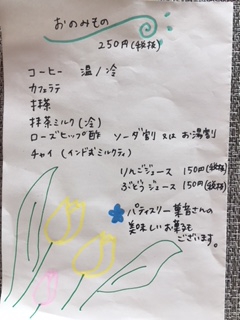 おのみもの
250円(税抜)
コーヒー 温/冷
カフェラテ
抹茶
抹茶ミルク(冷)
ローズヒップ酢 ソーダ割 又は お湯割
チャイ (インド式ミルクティ)
りんごジュース 150円(税抜)
ぶどうジュース 150円(税抜)
パティスリー菓音さんの
美味しいお菓子も
ございます。